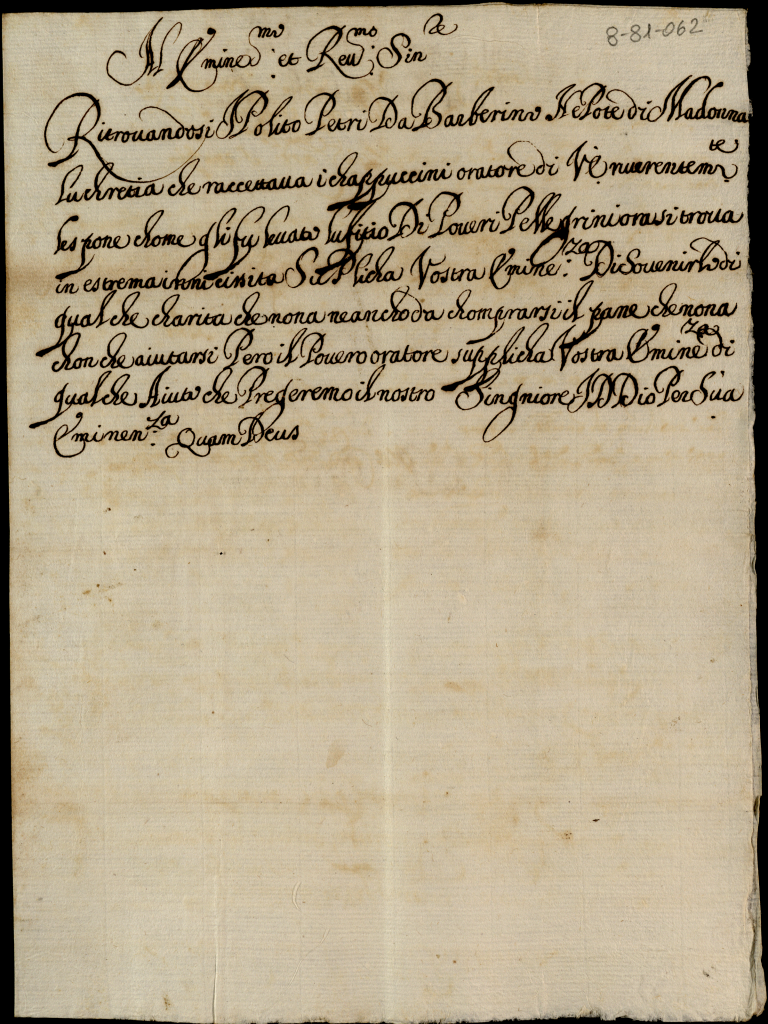 8-81-062
Emine.mo et Reu.mo Sin re
Ritrouandosi IPolito Petri Da Barberino NePote di Madonna
luchretia che raccettaua i chappuccini oratore di VE nuerentem.te
les pone chome gli fu leuato lufitio Di Poueri Pellegrini ora si troua
in estrema innicissita SuPlicha Vostra Emine.za Di Souenirlo di
qual che charita che nona neancho da chomprarsi il pane che nona
chon che aiutarsi Pero il Pouero oratore supplicha Vostra Emine.za di
qualche Aiuto che Pregeremo il nostro Singniore IDDio Per Sua
Eminen.za Quam Deus